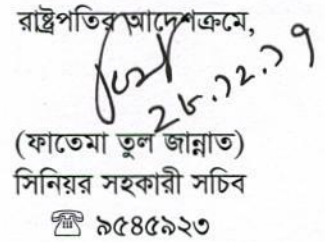 রাষ্ট্রপতির আদেশক্রমে,
২৮.১২.১৭
(ফাতেমা তুল জান্নাত)
সিনিয়র সহকারী সচিব
☎ ৯৫৪৫৯২৩